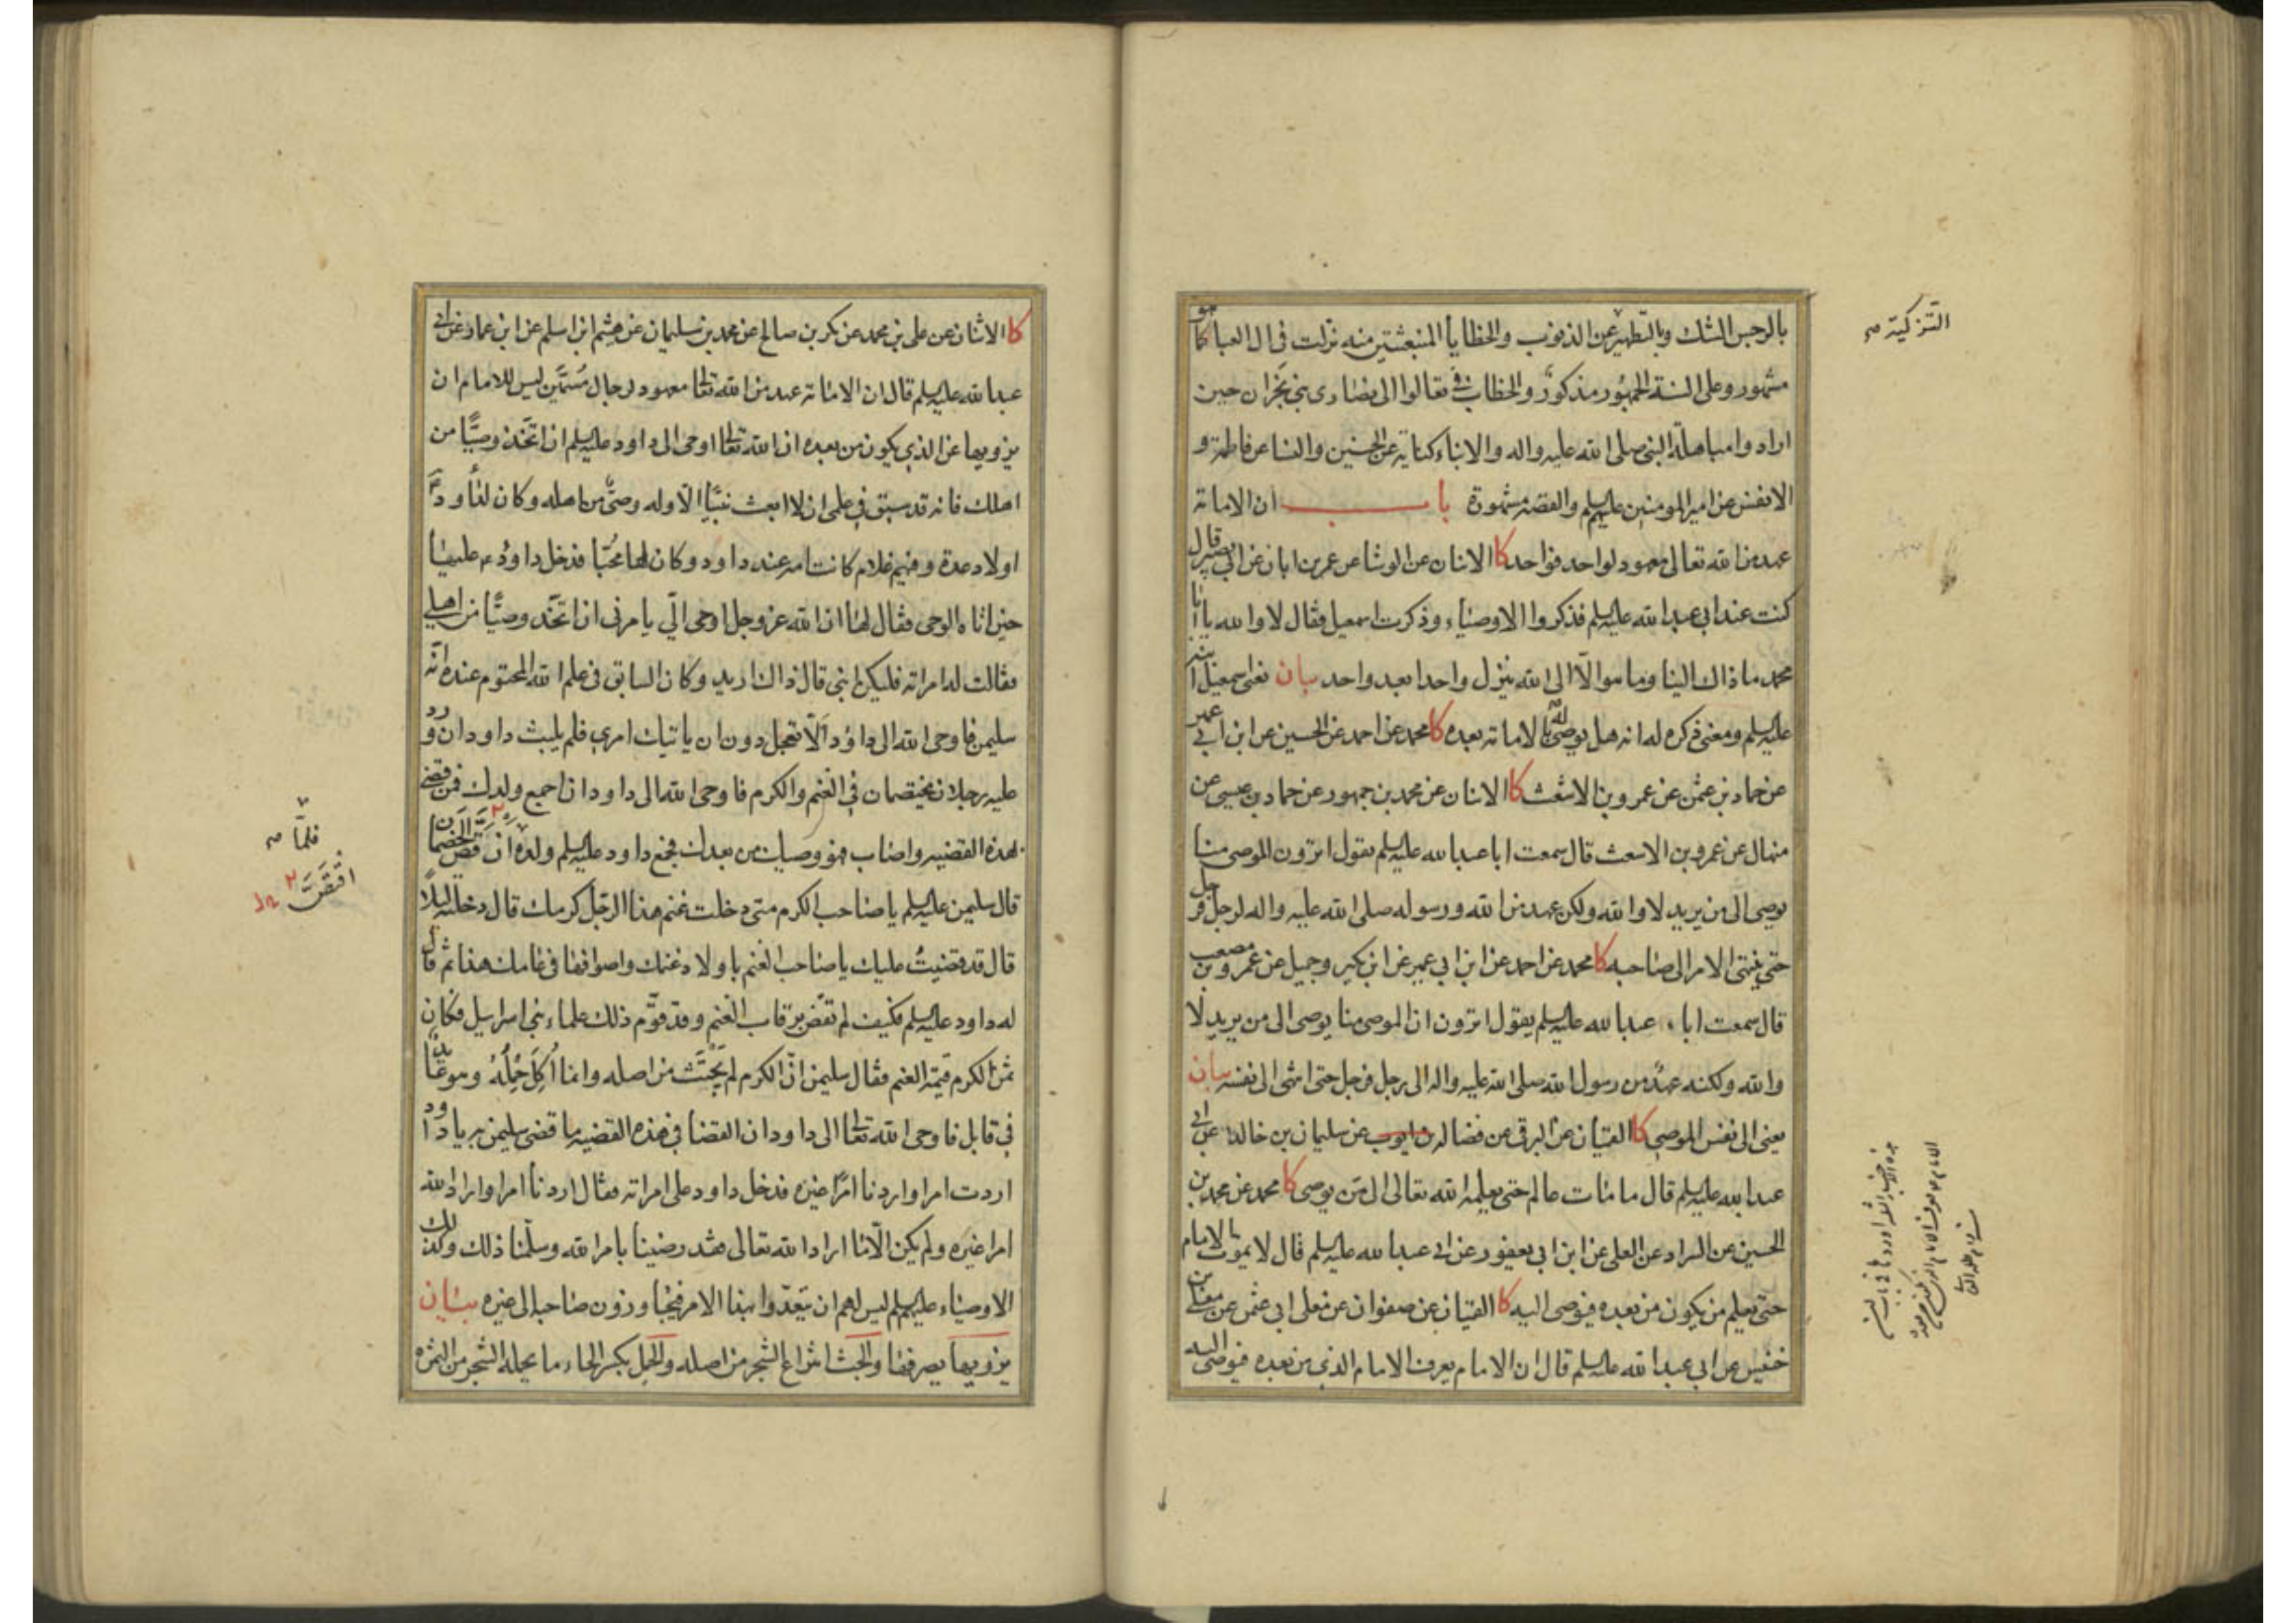 بالرجس الشك وبالتطهير عن الذنوب والخطايا المنبعثتين منه نزلت في ال العبا كما هو
مشهور وعلى السنة الجمهور مذكور والخطاب في تعالوا الى نصارى بني نجران حين
ارادوا مباهلة النبي صلى الله عليه واله والابناء كناية عن الحسنين والنسا عن فاطمة و
الانفس عن امير المومنين عليهم السلم والقصة مشهورة باب ان الامامة
عهد من الله تعالى معهود لواحد فواحد كا الاثنان عن الوشا عن عمر بن ابان عن ابي بصير قال
كنت عند ابي عبد الله عليه السلم فذكروا الاوصياء وذكرت اسمعيل فقال لا والله يا ابا
محمد ما ذاك الينا وما هو الا الى الله ينزل واحدا بعد واحد بيان يعني اسمعيل ابنه
عليه السلم ومعنى ذكره له انه هل يوصى له بالامامة بعده كا محمد عن احمد عن الحسين عن ابن ابي عمير
عن حماد بن عثمن عن عمرو بن الاشعث كا الاثنان عن محمد بن جمهور عن حماد بن عيسى عن
منهال عن عمرو بن الاشعث قال سمعت ابا عبد الله عليه السلم يقول اترون الموصي منا
يوصي الى من يريد لا والله ولكن عهد من الله ورسوله صلى الله عليه واله لرجل فرجل
حتى ينتهي الامر الى صاحبه كا محمد عن احمد عن ابن ابي عمير عن ابن بكير وجميل عن عمرو بن مصعب
قال سمعت ابا عبد الله عليه السلم يقول اترون ان الموصي منا يوصي الى من يريد لا
والله ولكنه عهد من رسول الله صلى الله عليه واله الى رجل فرجل حتى انتهى الى نفسه بيان
يعني الى نفس الموصي كا القميان عن البرقي عن فضالة بن ايوب عن سليمان بن خالد عن ابي
عبد الله عليه السلم قال ما مات عالم حتى يعلمه الله تعالى الى من يوصي كا محمد عن محمد بن
الحسين عن السراد عن العلى عن ابن ابي يعفور عن ابي عبد الله عليه السلم قال لا يموت الامام
حتى يعلم من يكون من بعده فيوصي اليه كا القميان عن صفوان عن معلى ابي عثمن عن معلى بن
خنيس عن ابي عبد الله عليه السلم قال ان الامام يعرف الامام الذي من بعده فيوصي اليه
التزكية صح
كا الاثنان عن علي بن محمد عن بكر بن صالح عن محمد بن سليمان عن هيثم ابن اسلم عن ابن عمار عن ابي
عبد الله عليه السلم قال ان الامامة عهد من الله تعالى معهود لرجال مسمين ليس للامام ان
يزويها عن الذي يكون من بعده ان الله تعالى اوحى الى داود عليه السلم ان اتخذ وصيا من
اهلك فانه قد سبق في علمي ان لا ابعث نبيا الا وله وصي من اهله وكان لداود
اولاد عدة وفيهم غلام كانت امه عند داود وكان لها محبا فدخل داود عليها
حين اتاه الوحي فقال لها ان الله عز وجل اوحى الي يامرني ان اتخذ وصيا من اهلي
فقالت له امراته فليكن ابني قال ذاك اريد وكان السابق في علم الله المحتوم عنده انه
سليمن فاوحى الله الى داود الا تعجل دون ان ياتيك امري فلم يلبث داود ان ورد
عليه رجلان يختصمان في الغنم والكرم فاوحى الله الى داود ان اجمع ولدك فمن قضى
بهذه القضية واصاب فهو وصيك من بعدك فجمع داود عليه السلم ولده ان قص الخصمان
قال سليمن عليه السلم يا صاحب الكرم متى دخلت غنم هذا الرجل كرمك قال دخلته ليلا
قال قد قضيت عليك يا صاحب الغنم باولاد غنمك واصوافها في عامك هذا ثم قال
له داود عليه السلم فكيف لم تقض برقاب الغنم وقد قوم ذلك علماء بني اسرايل فكان
ثمن الكرم قيمة الغنم فقال سليمن ان الكرم لم يجتث من اصله وانما اكل حمله وهو عايد
في قابل فاوحى الله تعالى الى داود ان القضا في هذه القضية ما قضى سليمن به يا داود
اردت امرا واردنا امرا غيره فدخل داود على امراته فقال اردنا امرا واراد الله
امرا غيره ولم يكن الا ما اراد الله تعالى فقد رضينا بامر الله وسلمنا ذلك وكذلك
الاوصياء عليهم السلم ليس لهم ان يتعدوا بهذا الامر فيجاوزون صاحبه الى غيره بيان
يزويها يصرفها والجث انتزاع الشجر من اصله والحمل بكسر الحاء ما يحمله الشجر من الثمرة
فلما صح
اقتص